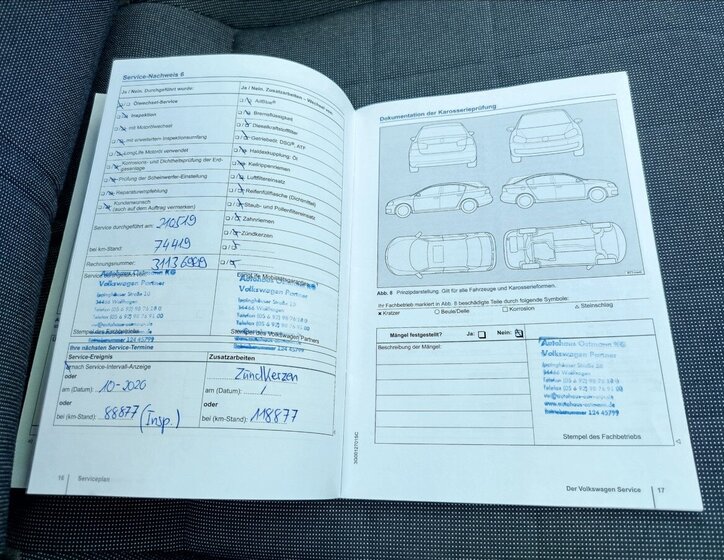 Service-Nachweis 6
Ja / Nein. Durchgeführt wurde:
Ölwechsel-Service
Inspektion
mit Motorölwechsel
mit erweitertem Inspektionsumfang
LongLife Motoröl verwendet
Korrosions- und Dichtheitsprüfung der Erd-
gasanlage
Prüfung der Scheinwerfer-Einstellung
Reparaturempfehlung
Kundenwunsch
(auch auf dem Auftrag vermerken)
Service durchgeführt am:
bei km-Stand: 74419
Rechnungsnummer:
Autohaus Ostmann KG
Volkswagen Partner
34466 Wolfhagen
Stempel des Fachbetriebs
Ja / Nein. Zusatzarbeiten – Wechsel von:
AdBlue®
Bremsflüssigkeit
Dieselkraftstofffilter
Getriebeöl: DSG®, ATF
Haldexkupplung: Öl
Keilrippenriemen
Luftfiltereinsatz
Reifenfüllflasche (Dichtmittel)
Staub- und Pollenfiltereinsatz
Zahnriemen
Zündkerzen
Autohaus Ostmann KG
Volkswagen Partner
34466 Wolfhagen
Stempel des Volkswagen Partners
Ihre nächsten Service-Termine
Service-Ereignis
nach Service-Intervall-Anzeige
oder
am (Datum): 10-2020
oder
bei (km-Stand): 88877 (Insp.)
Zusatzarbeiten
Zündkerzen
am (Datum):
oder
bei (km-Stand): 118877
16 Serviceplan
Dokumentation der Karosserieprüfung
Abb. 6 Prinzipdarstellung. Gilt für alle Fahrzeuge und Karosserieformen.
Ihr Fachbetrieb markiert in Abb. 6 beschädigte Teile durch folgende Symbole:
× Kratzer ○ Beule/Delle □ Korrosion △ Steinschlag
Mängel festgestellt? Ja: Nein:
Beschreibung der Mängel:
Autohaus Ostmann KG
Volkswagen Partner
34466 Wolfhagen
www.autohaus-ostmann.de
Betriebsnummer 124 45799
Stempel des Fachbetriebs
Der Volkswagen Service 17